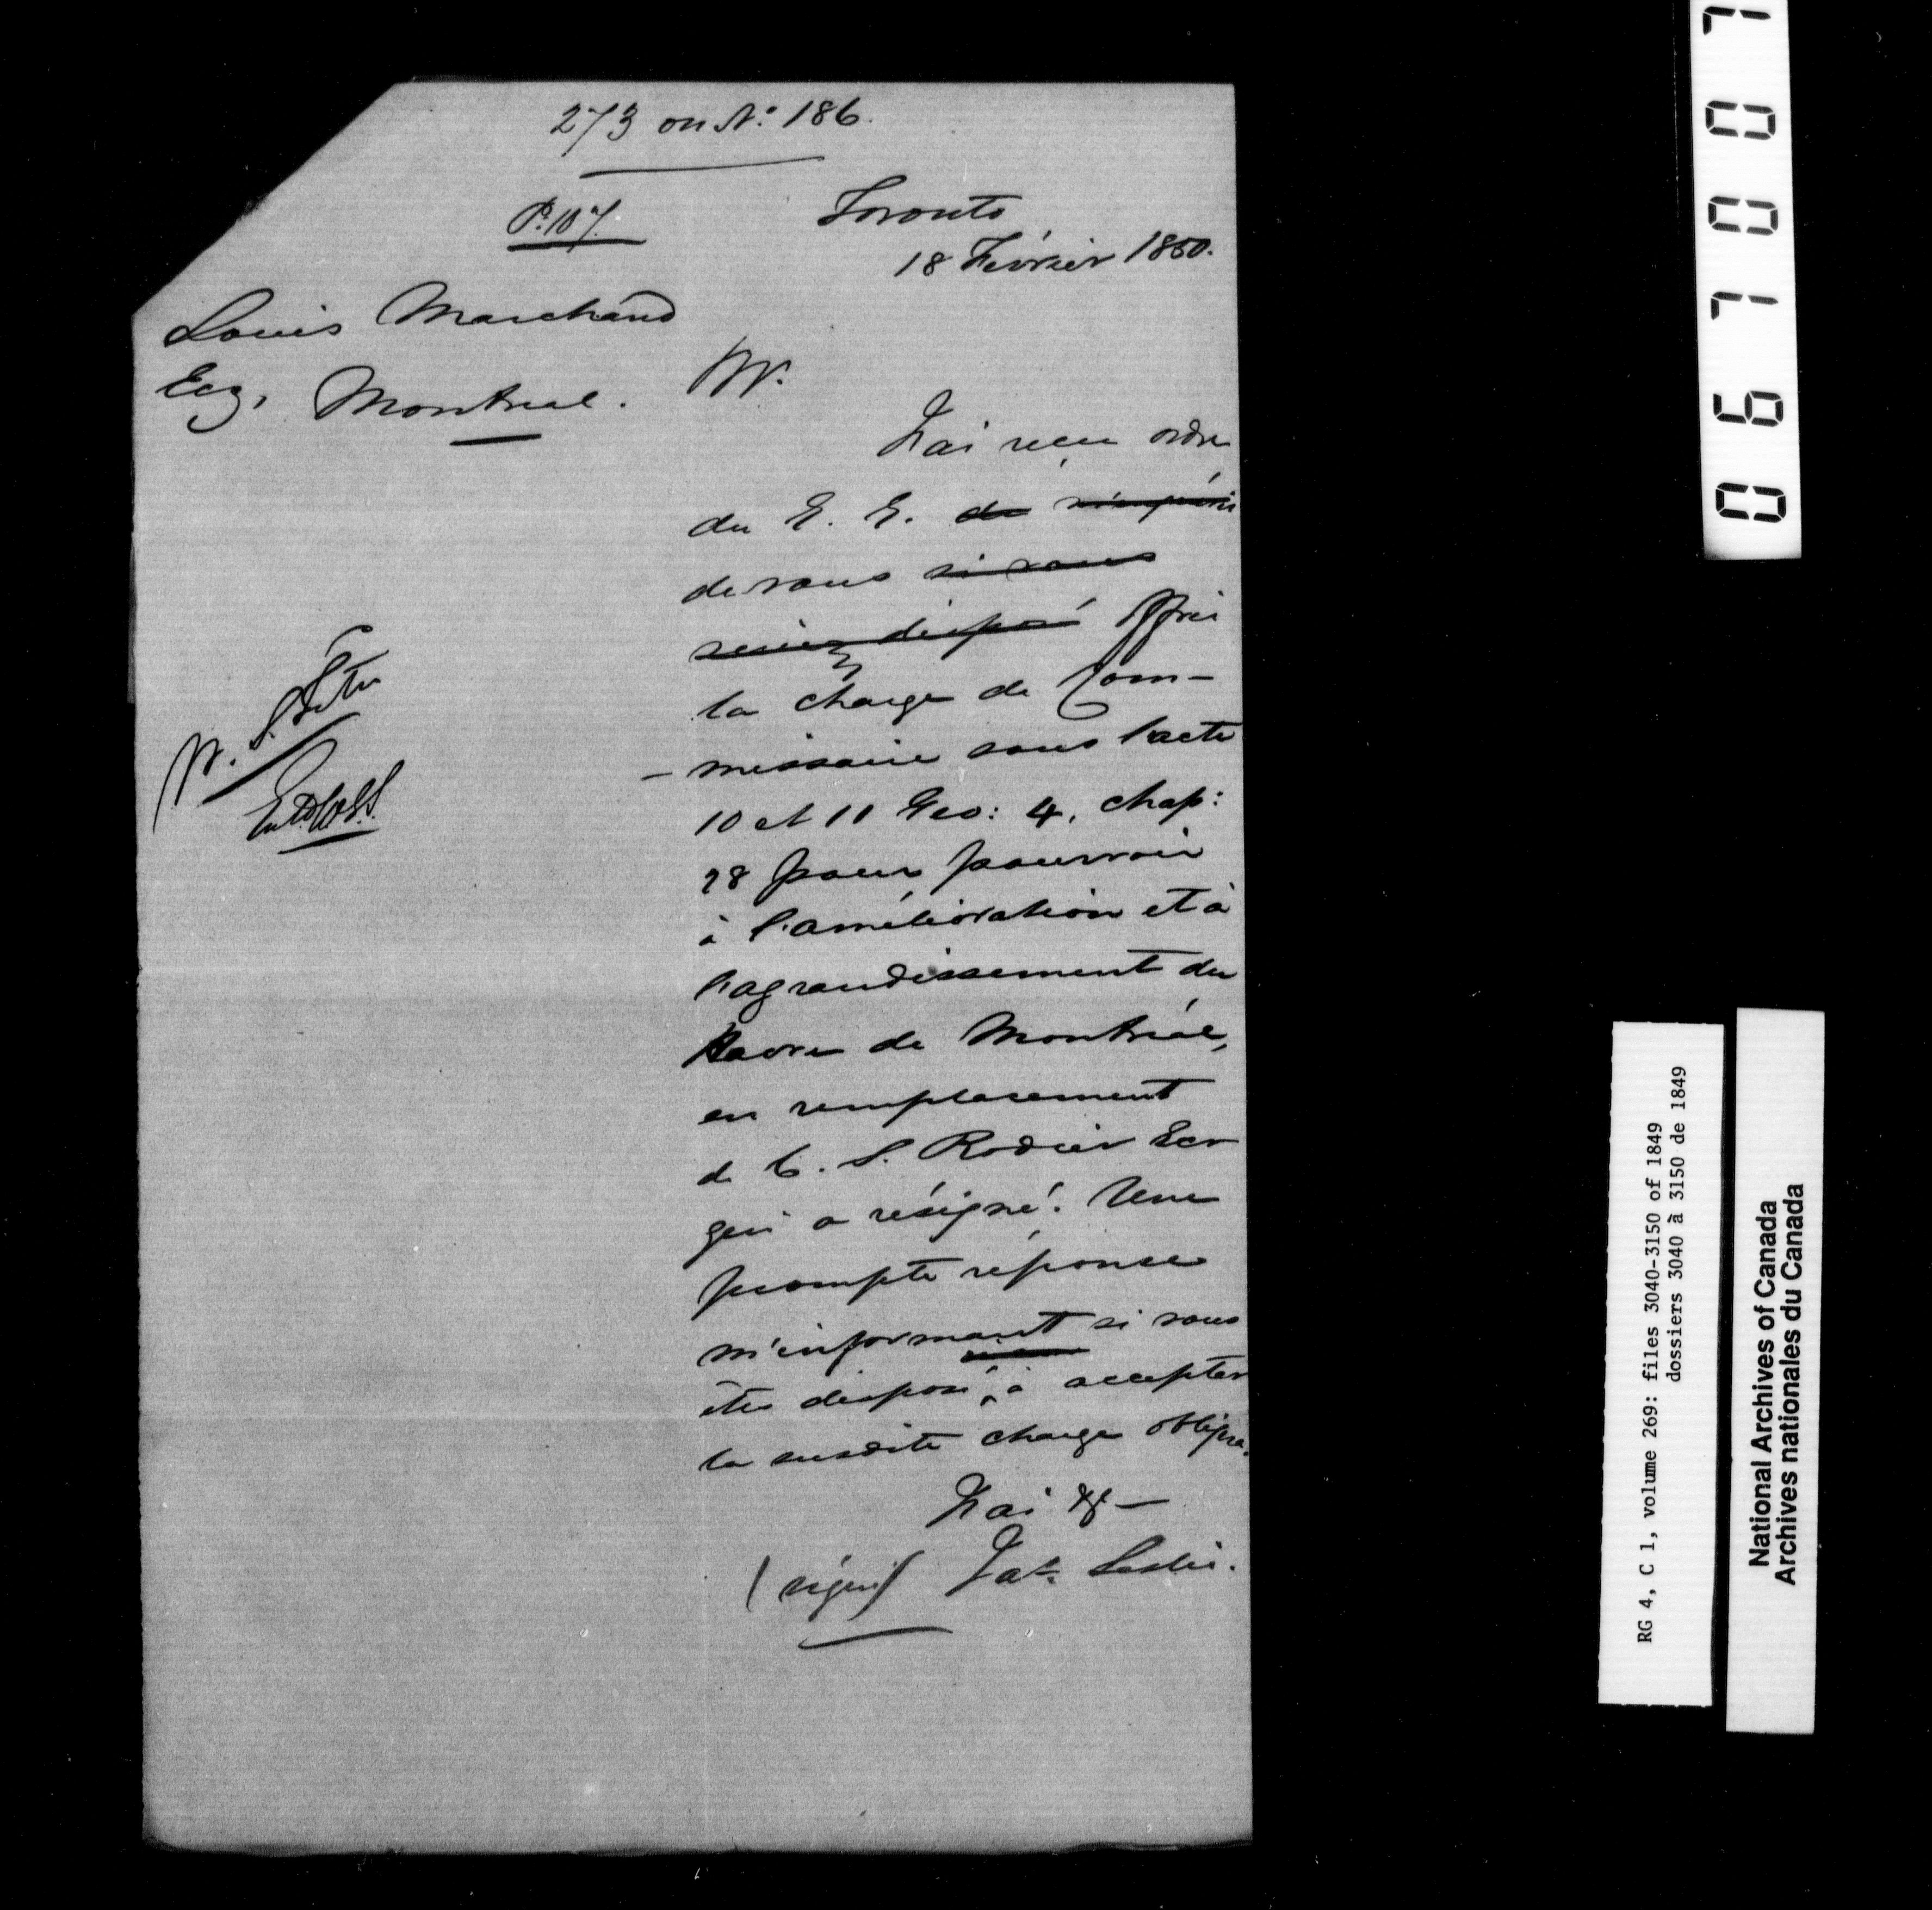 273 on No: 186.
P. 107.
Toronto
18 Février 1850.
Louis Marchand
Ecr, Montreal.
Mr.
J'ai reçu ordre
du G. G. de m'enquérir
de vous si vous
seriez disposé offrir
la charge de Com-
- missaire sous l'acte
10 et 11 Geo: 4. chap:
28 pour pourvoir
à l'amélioration et à
l'agrandissement du
Havre de Montréal,
en remplacement
de C. S. Rodier Ecr
qui a résigné. Une
prompte réponse
m'informant si vous
êtes disposé à accepter
la susdite charge obligera.
J'ai &c —
(signé) Jas. Leslie.
067007
RG 4, C 1, volume 269: files 3040-3150 of 1849
dossiers 3040 à 3150 de 1849
National Archives of Canada
Archives nationales du Canada